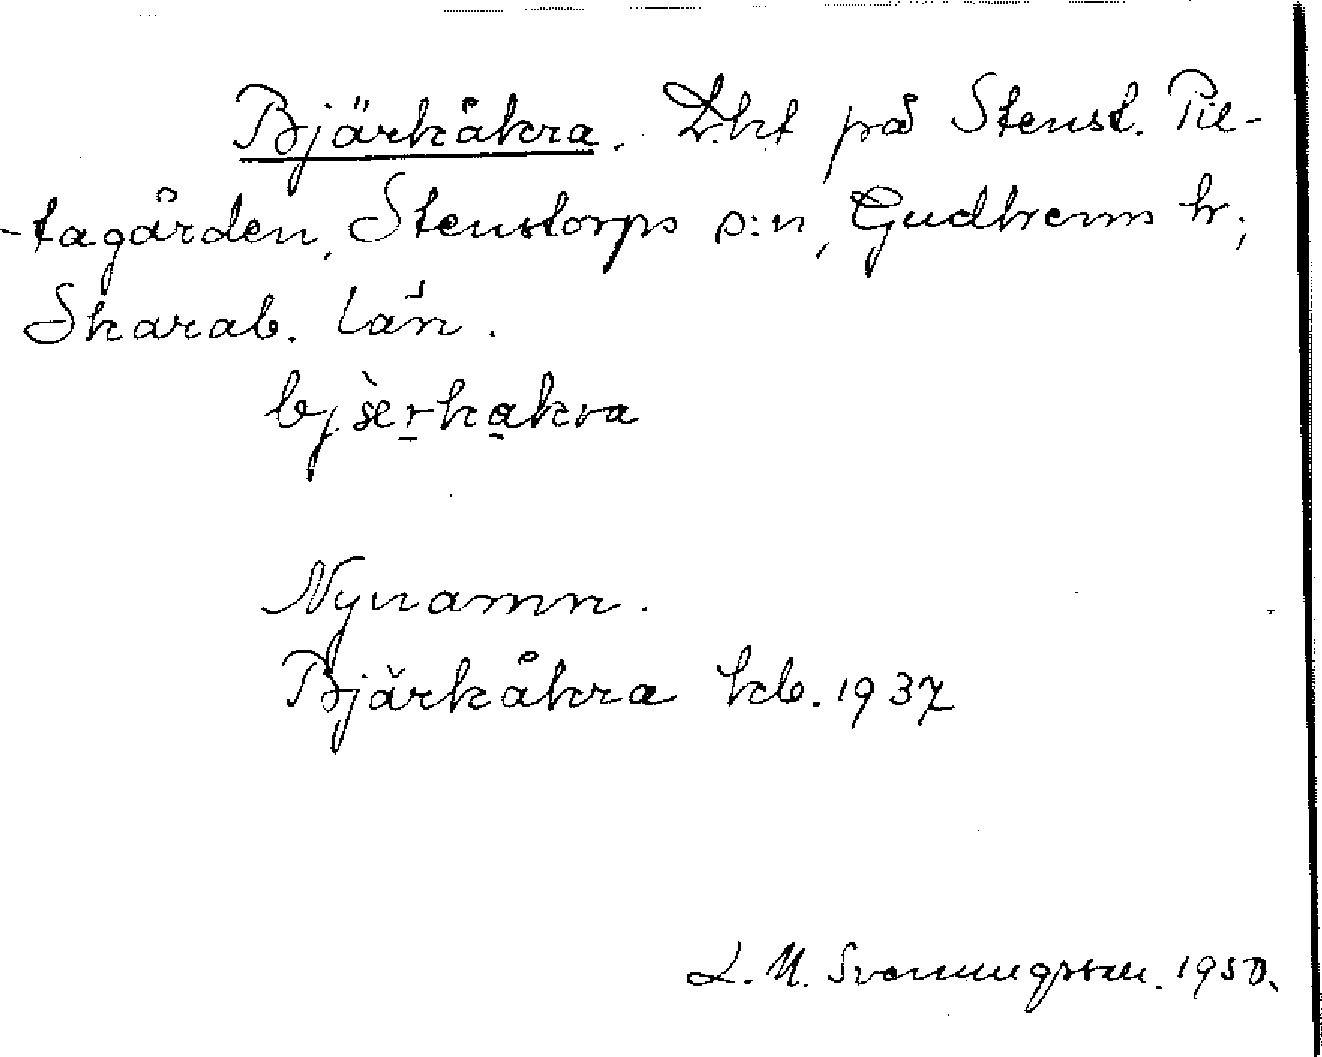 Bjärkåkra. Lht på Stenst. Pil-
-tagården, Stenstorps s:n, Gudhems h;
Skarab. län.
bjæ̀rkakra
Nynamn.
Bjärkåkra kb. 1937
L. M. Svenungsson. 1950.